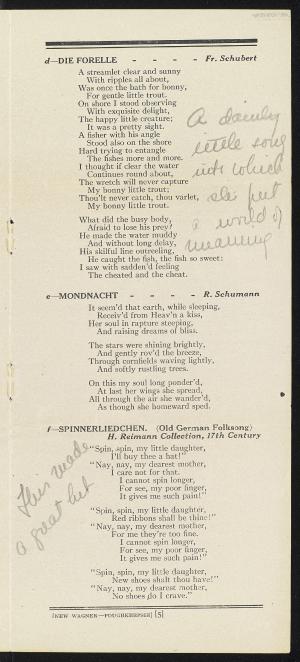 d—DIE FORELLE - - - - Fr. Schubert
A streamlet clear and sunny
With ripples all about,
Was once the bath for bonny,
For gentle little trout.
On shore I stood observing
With exquisite delight,
The happy little creature;
It was a pretty sight.
A fisher with his angle
Stood also on the shore
Hard trying to entangle
The fishes more and more.
I thought if clear the water
Continues round about,
The wretch will never capture
My bonny little trout;
Thou'lt never catch, thou varlet,
My bonny little trout.
What did the busy body,
Afraid to lose his prey?
He made the water muddy
And without long delay,
His skilful line outreeling,
He caught the fish, the fish so sweet:
I saw with sadden'd feeling
The cheated and the cheat.
A dainty
little song
into which
she put
a world of
meaning
e—MONDNACHT - - - - - R. Schumann
It seem'd that earth, while sleeping,
Receiv'd from Heav'n a kiss,
Her soul in rapture steeping,
And raising dreams of bliss.
The stars were shining brightly,
And gently rov'd the breeze,
Through cornfields waving lightly,
And softly rustling trees.
On this my soul long ponder'd,
At last her wings she spread,
All through the air she wander'd,
As though she homeward sped.
f—SPINNERLIEDCHEN. (Old German Folksong)
H. Reimann Collection, 17th Century
"Spin, spin, my little daughter,
I'll buy thee a hat!"
"Nay, nay, my dearest mother,
I care not for that.
I cannot spin longer,
For see, my poor finger,
It gives me such pain!"
"Spin, spin, my little daughter,
Red ribbons shall be thine!"
"Nay, nay, my dearest mother,
For me they're too fine.
I cannot spin longer,
For see, my poor finger,
It gives me such pain!"
"Spin, spin, my little daughter,
New shoes shalt thou have!"
"Nay, nay, my dearest mother,
No shoes do I crave."
This made
a great hit
[NEW WAGNER—POUGHKEEPSIE] [5]